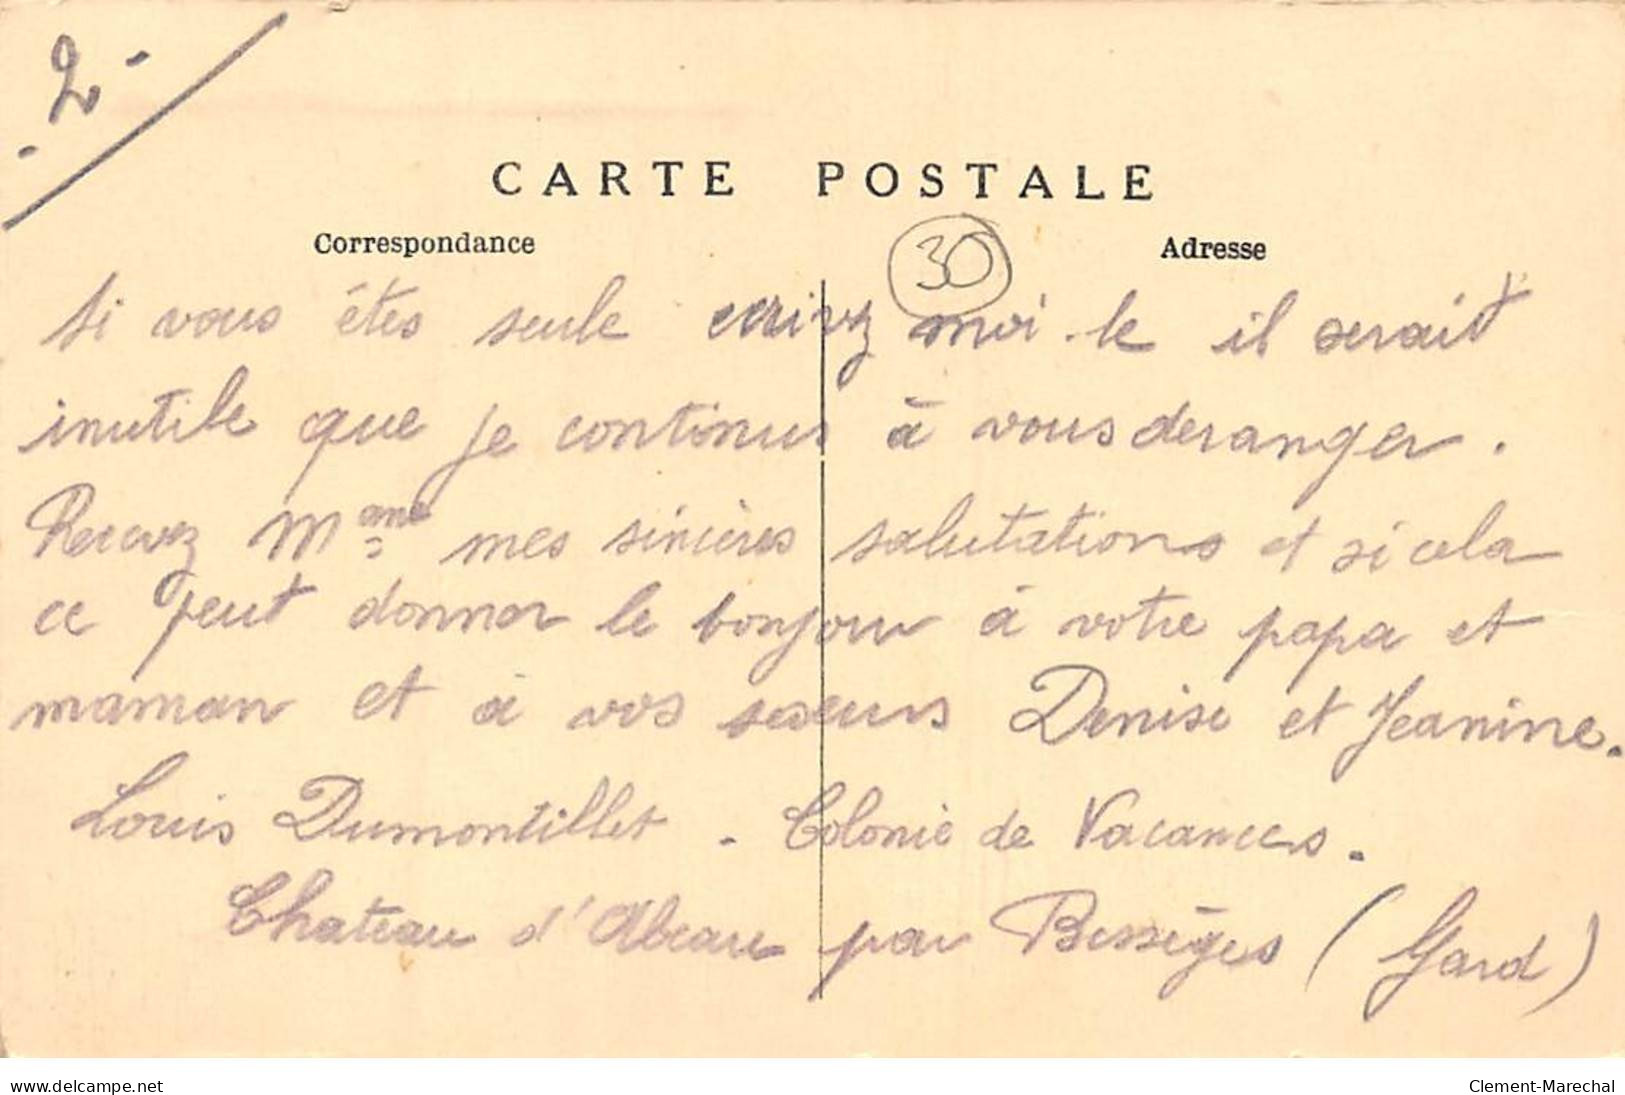 -2-
CARTE POSTALE
Correspondance
Adresse
30
Si vous êtes seule ecrivez moi-le il serait
inutile que je continus à vous deranger.
Recevez Mame mes sincères salutations et si cela
ce peut donner le bonjour à votre papa et
maman et à vos soeurs Denise et Jeanine.
Louis Dumontillet - Colonie de Vacances.
Chateau d'Abeau par Bessèges (Gard)
www.delcampe.net
Clement-Marechal